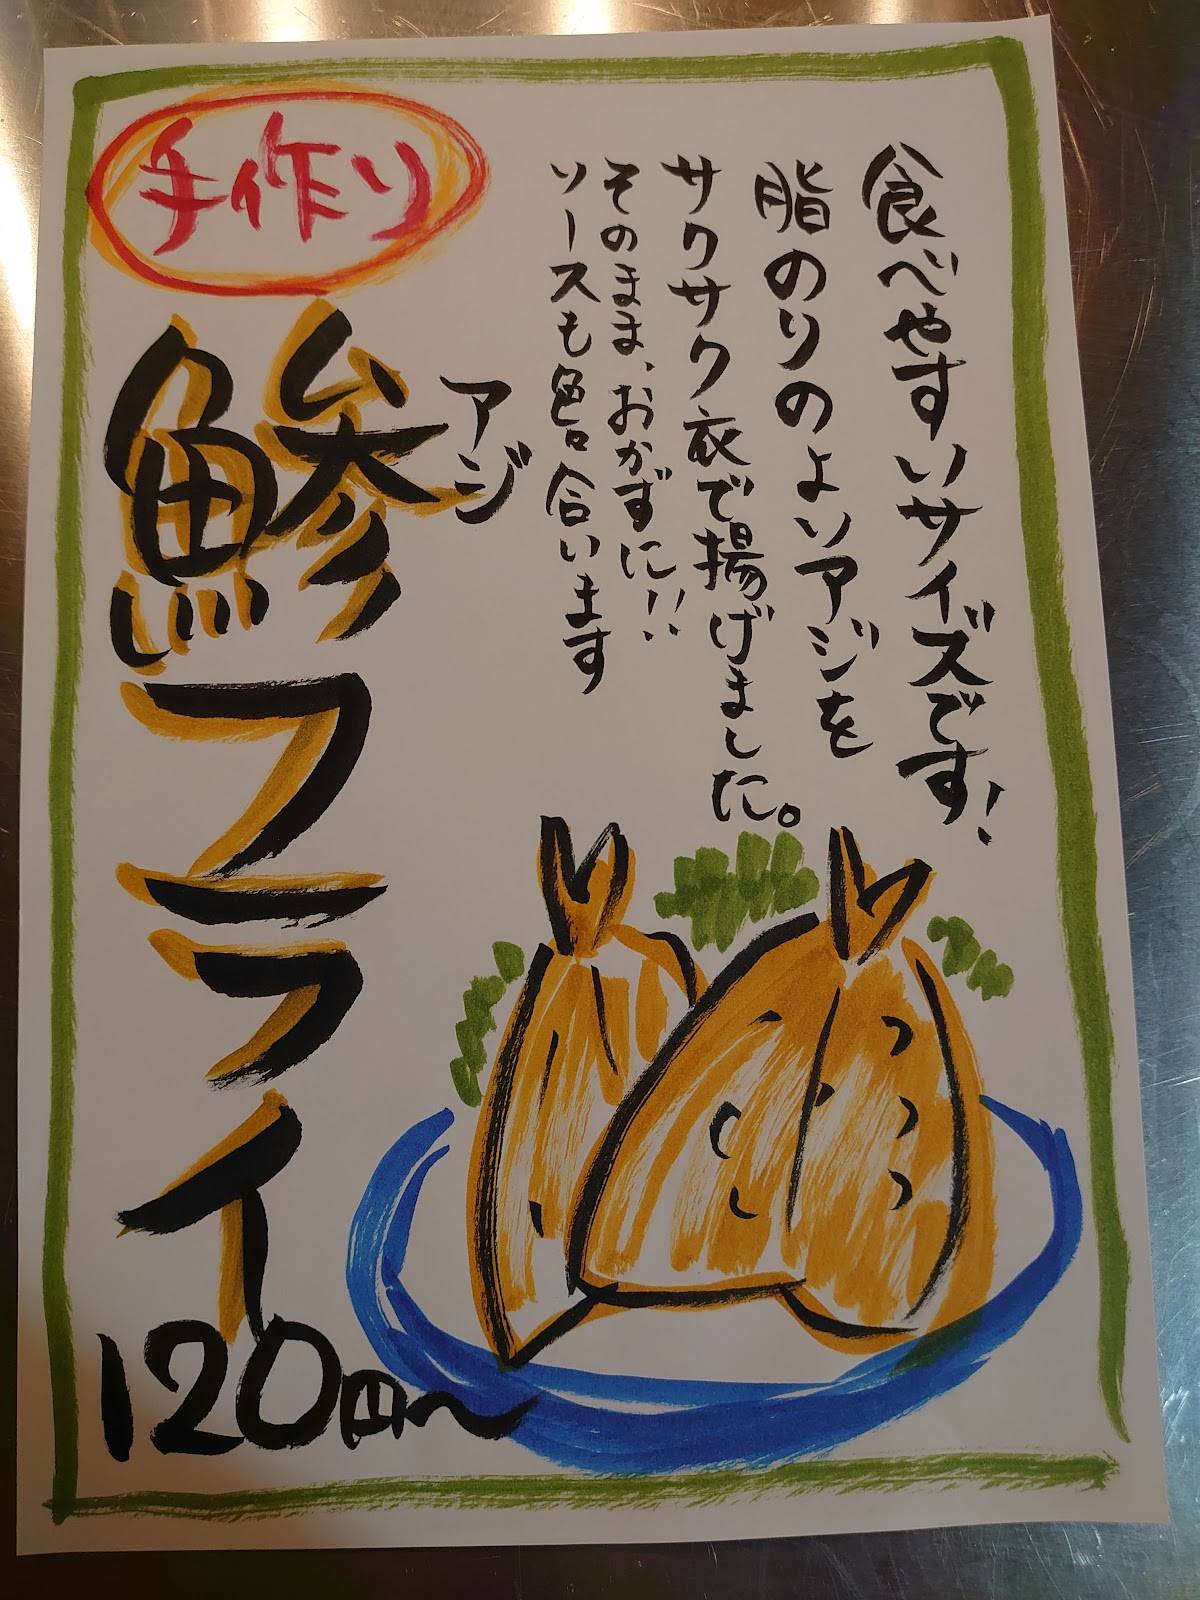 食べやすいサイズです!
脂のりのよいアジを
サクサク衣で揚げました。
そのまま、おかずに!!
ソースも色合います
アジ
手作り
鰺フライ
120円〜